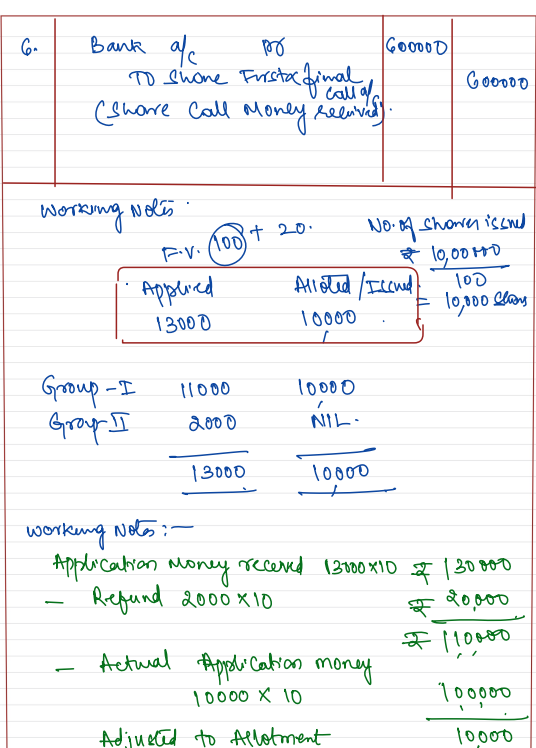 6. Bank a/c Dr 600000
To Share First & final call a/c 600000
(Share Call Money received).
Working Notes.
F.V. 100 + 20.
No. of Shares issued
₹ 10,00000
100
= 10,000 Shares
Applied Alloted/Issued
13000 10000
Group-I 11000 10000
Group II 2000 NIL.
13000 10000
Working Notes:-
Application Money received 13000x10 ₹ 130000
- Refund 2000x10 ₹ 20,000
₹ 110000
- Actual Application money
10000 x 10 100,000
Adjusted to Allotment 10,000